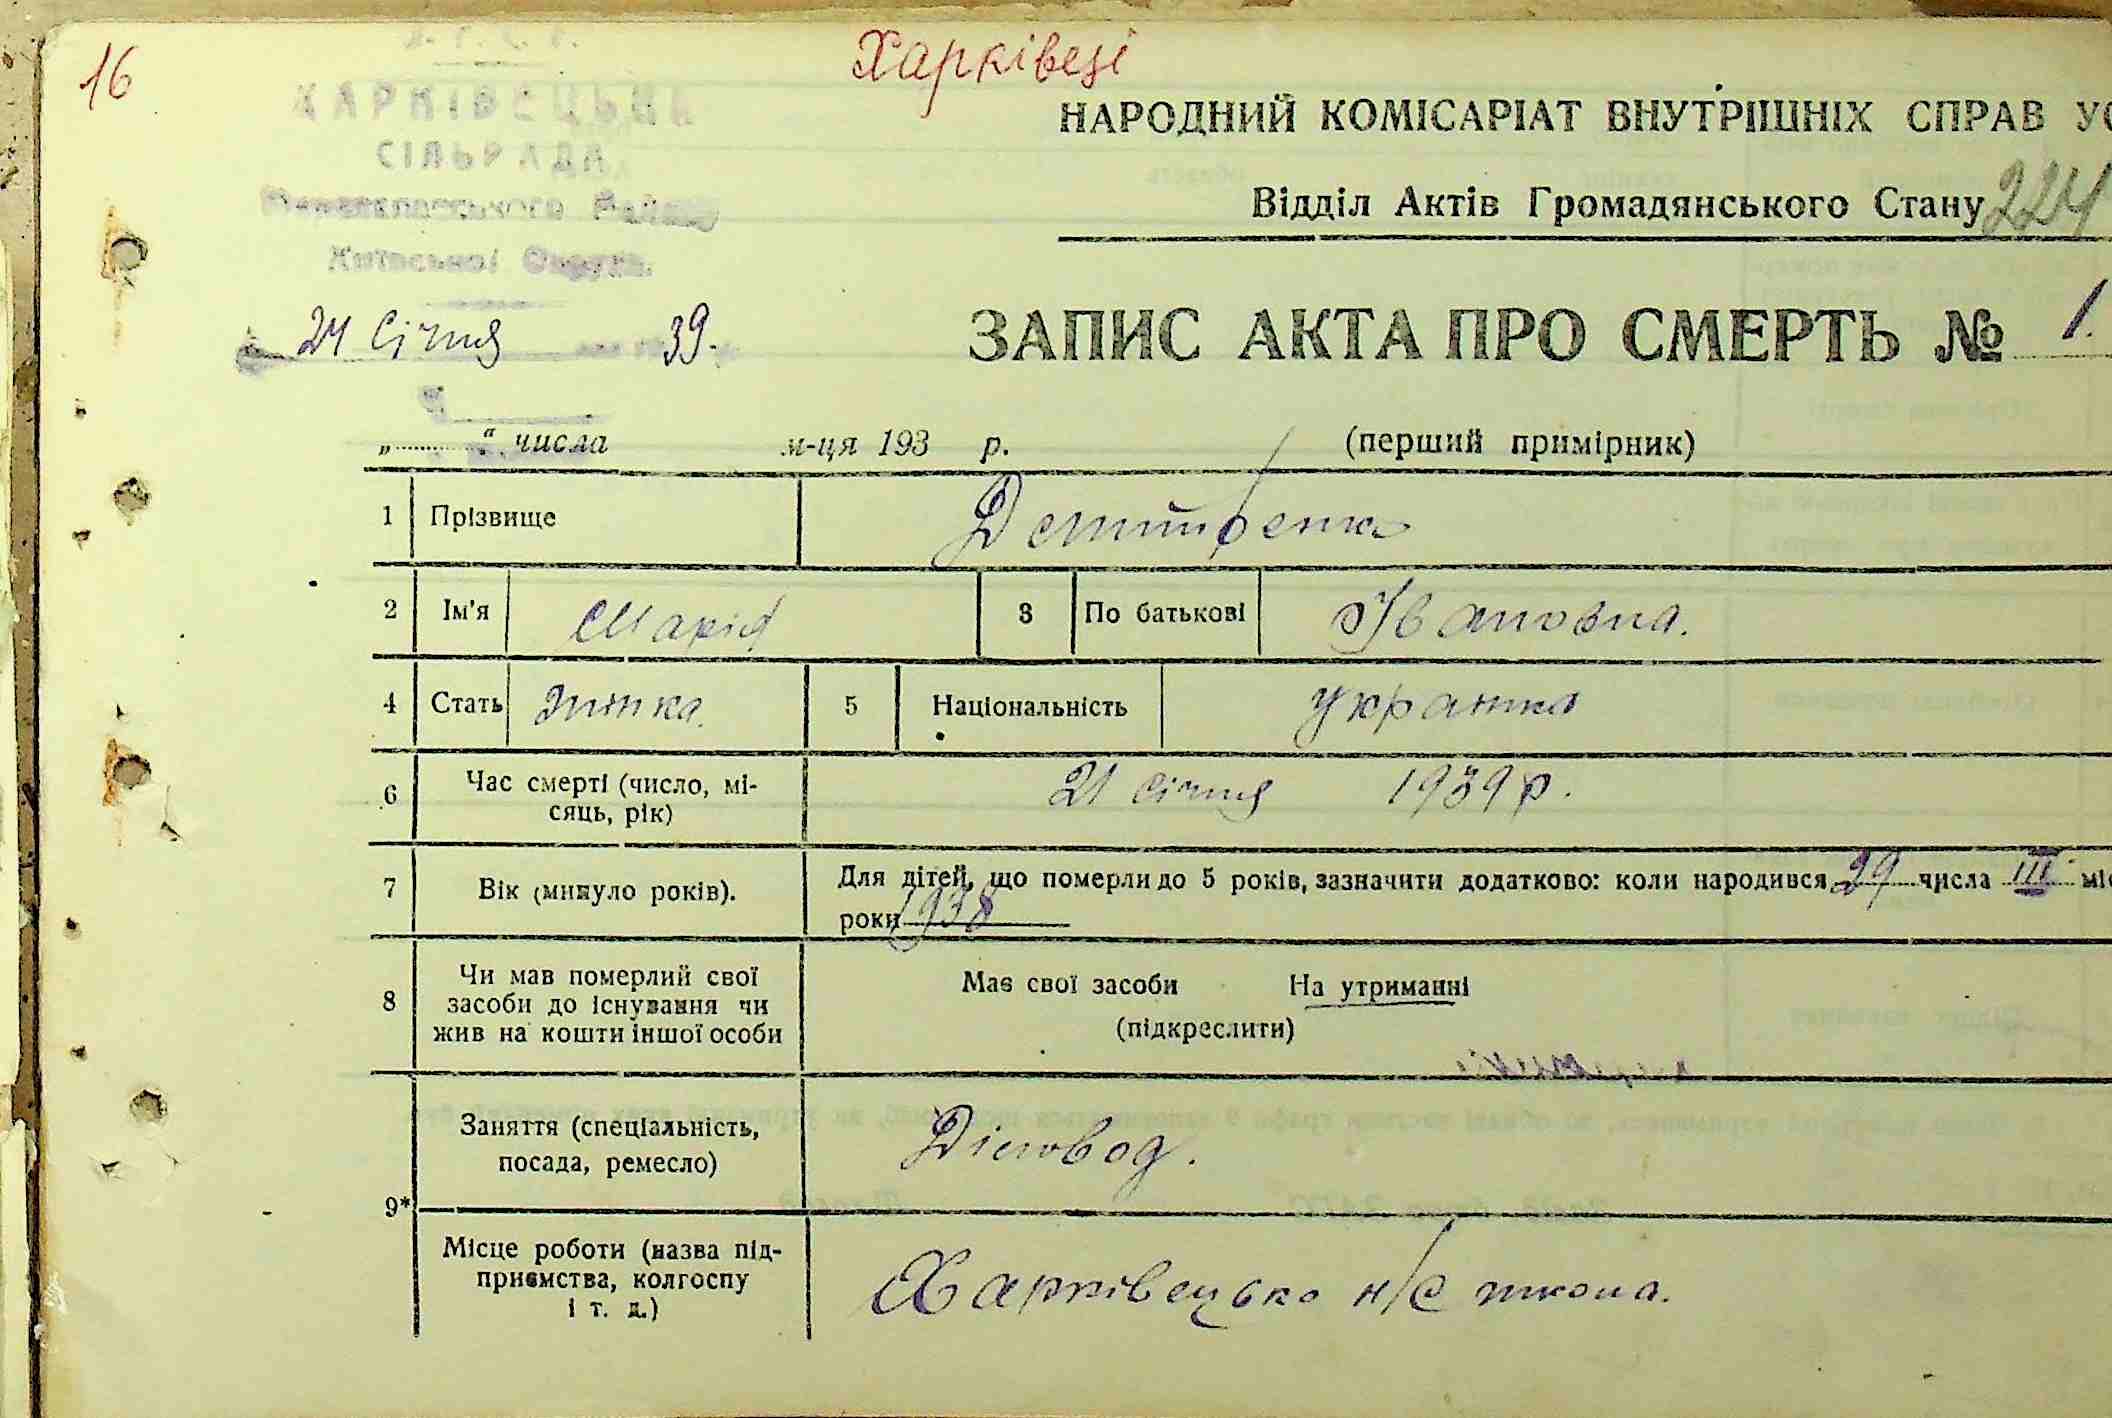 16
Харківці
ХАРКІВЕЦЬКА
СІЛЬРАДА
Київської Округи
24 січня 39.
НАРОДНИЙ КОМІСАРІАТ ВНУТРІШНІХ СПРАВ УС
Відділ Актів Громадянського Стану 224
ЗАПИС АКТА ПРО СМЕРТЬ № 1.
„ “ числа м-ця 193 р. (перший примірник)
1 Прізвище
2 Ім'я Марія 3 По батькові Івановна.
4 Стать Жінка. 5 Національність українка
6 Час смерті (число, мі-
сяць, рік) 21 січня 1939 р.
7 Вік (минуло років). Для дітей, що померли до 5 років, зазначити додатково: коли народився 29 числа III міс
роки 1938
8 Чи мав померлий свої
засоби до існування чи
жив на кошти іншої особи
Має свої засоби На утриманні
(підкреслити)
9* Заняття (спеціальність,
посада, ремесло) Діловод.
Місце роботи (назва під-
приємства, колгоспу
і т. д.)
Харківецька н/с школа.